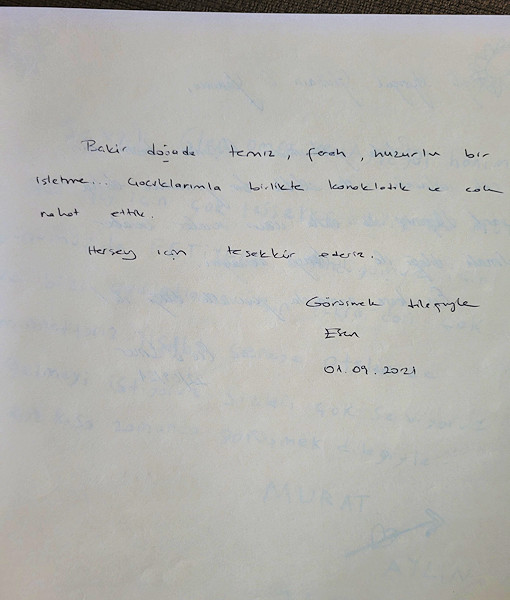 Bakir doğada temiz, ferah, huzurlu bir
işletme... Çocuklarımla birlikte konakladık ve çok
rahat ettik.
Herşey için teşekkür ederiz.
Görüşmek dileğiyle
Esen
01.09.2021